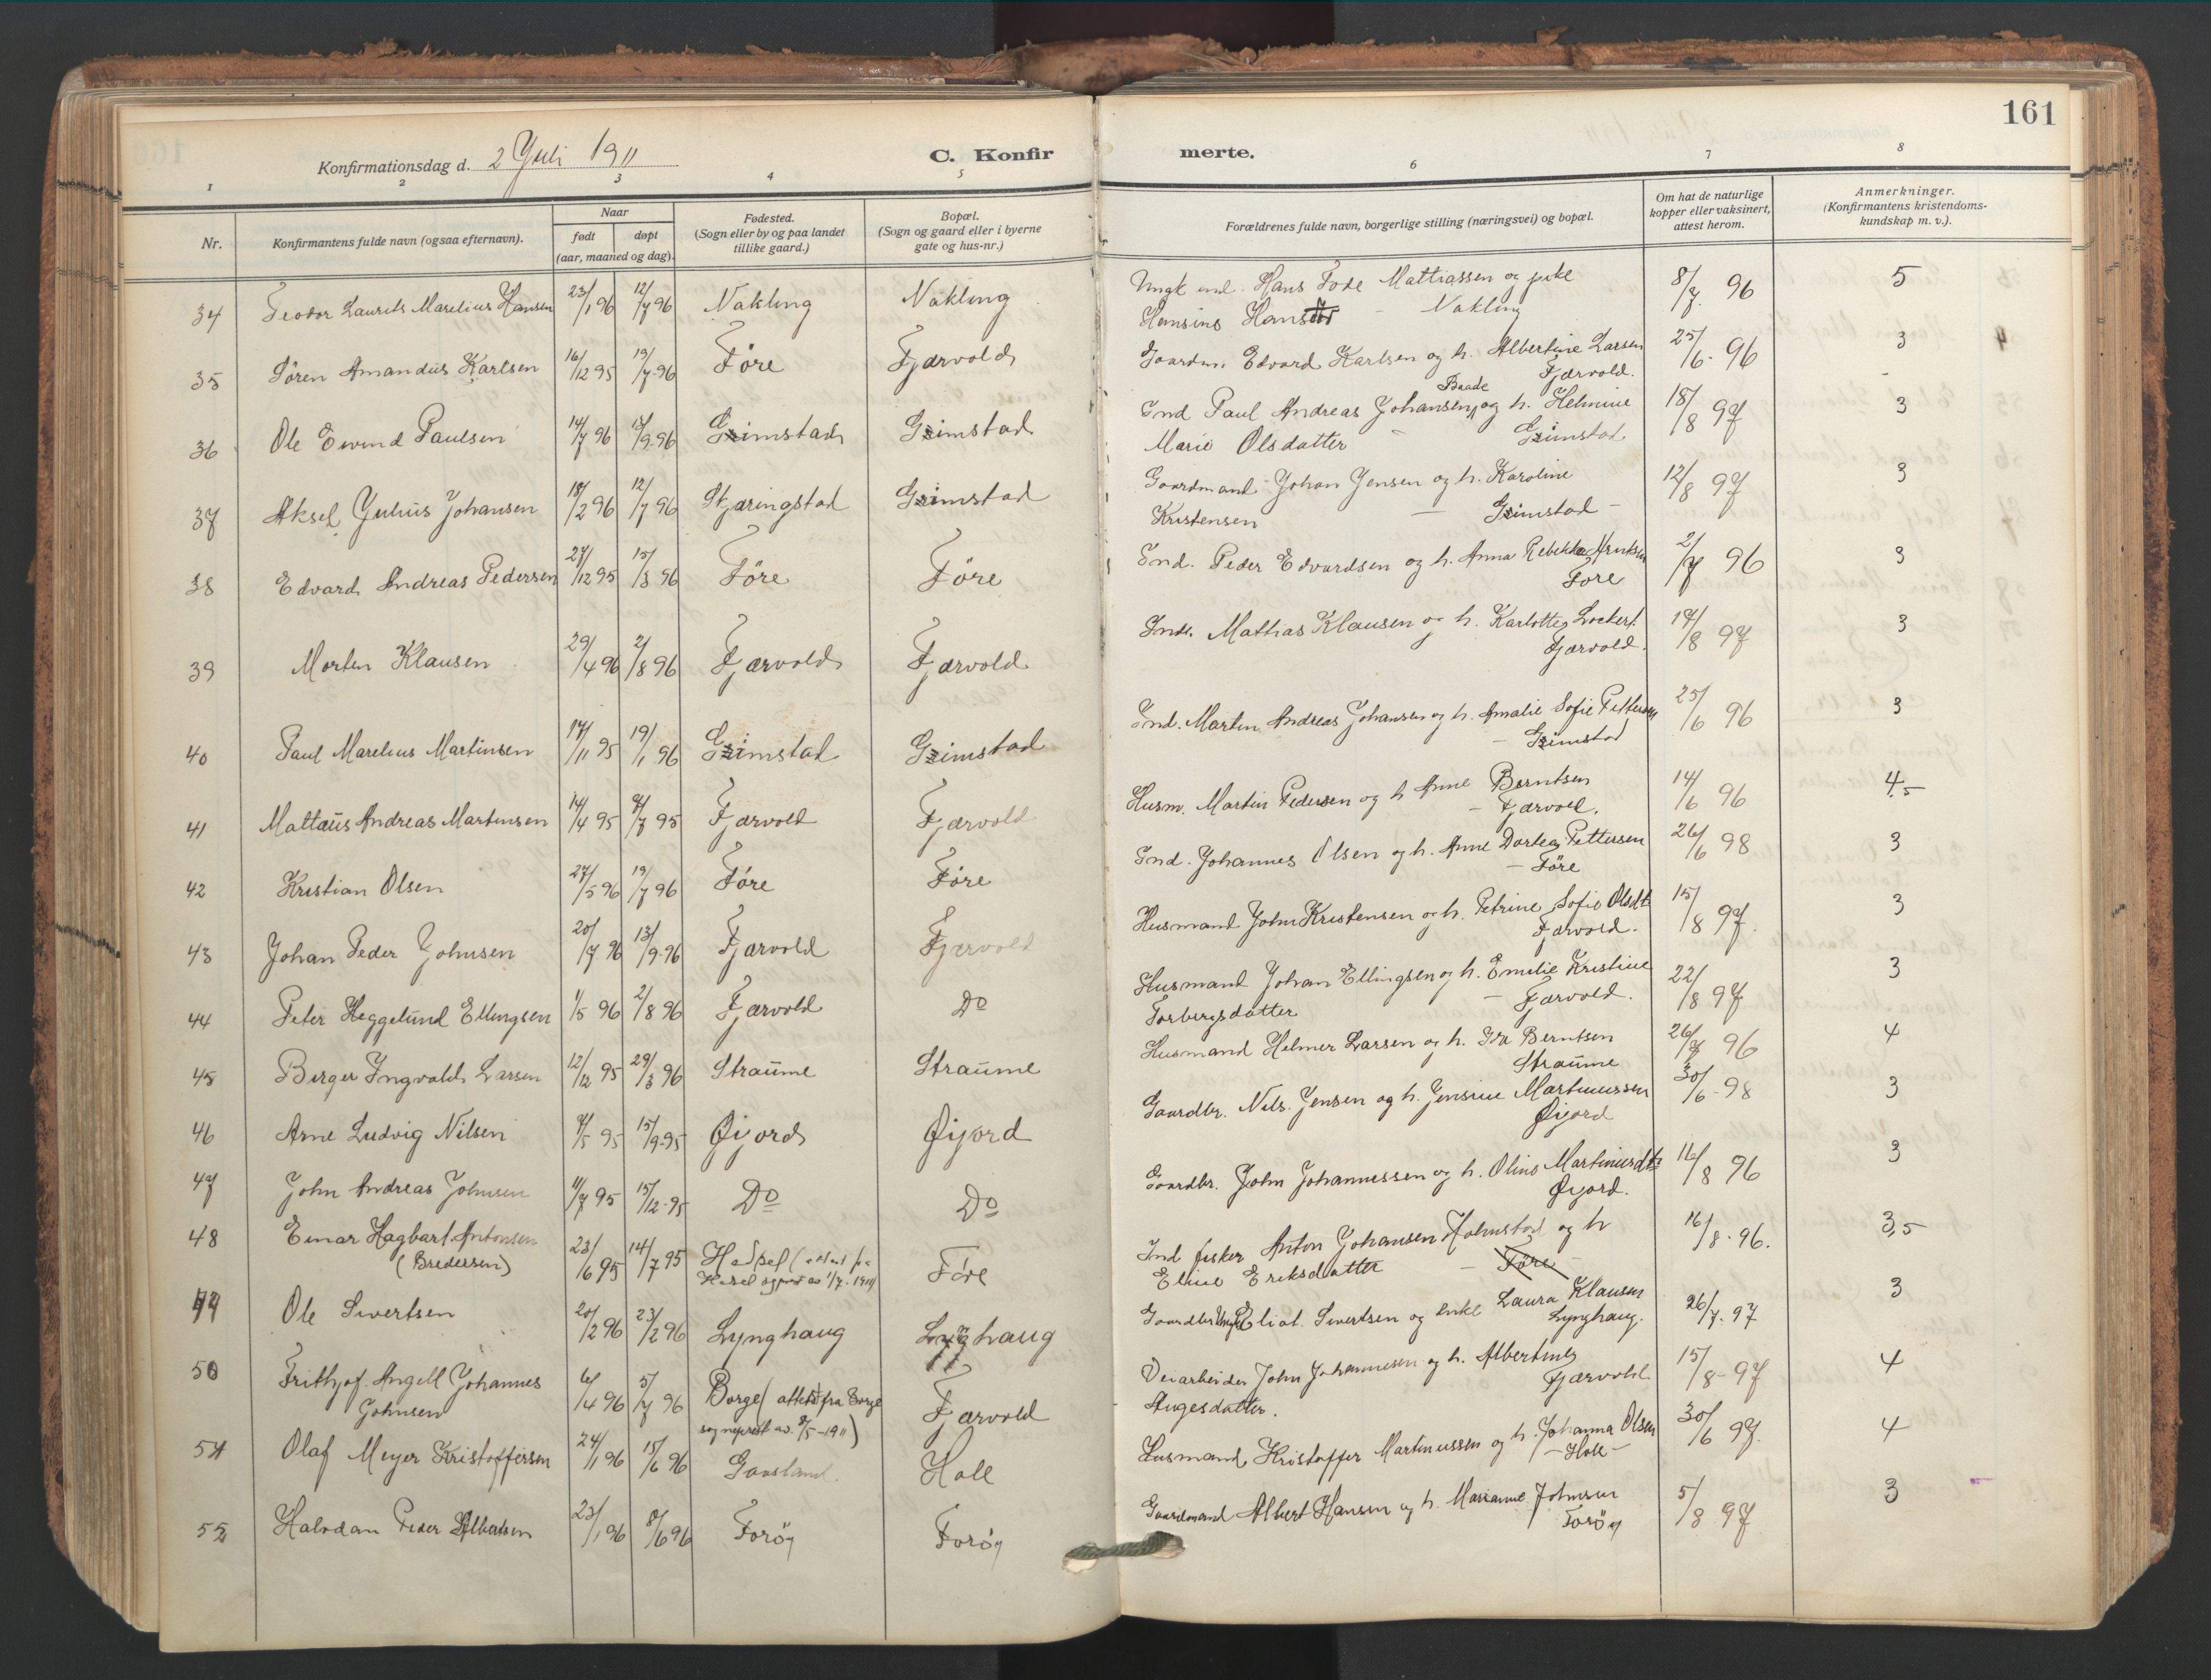 161
Konfirmationsdag d. 2 Juli 1911
C. Konfir merte.
1 2 3 4 5 6 7 8
Nr. Konfirmantens fulde navn (ogsaa efternavn). Naar født døpt (aar, maaned og dag). Fødested. (Sogn eller by og paa landet tillike gaard.) Bopæl. (Sogn og gaard eller i byerne gate og hus-nr.) Forældrenes fulde navn, borgerlige stilling (næringsvei) og bopæl. Om hat de naturlige kopper eller vaksinert, attest herom. Anmerkninger. (Konfirmantens kristendoms-kundskap m. v.).
34 Teodor Laurits Marelius Hansen 23/1 96 12/7 96 Nakling Nakling Ungk. ind. Hans Tode Mattiassen og pike 8/7. 96 5
Hansine Hans Nakling
35 Sören Amandus Karlsen 16/12 95 19/7-96 Före Fjærvold Gaardm. Edvard Karlsen og h. Albertine Larsen 25/6-96 3
Fjærvold.
36 Ole Eivind Paulsen 14/7 96 13/9.96 Grimstad Grimstad Ind Paul Andreas Johansen Baade og h. Helmine 18/8 97 3
Marie Olsdatter - Grimstad
37 Aksel Julius Johansen 18/2 96 12/7 96 Skjæringstad Grimstad Gaardmand Johan Jensen og h. Karoline 12/8 97 3
Kristensen - Grimstad -
38 Edvard Andreas Pedersen 27/12 95 15/3 96 Före Före Ind. Peder Edvardsen og h. Anna Rebekka 2/7 96 3
Fore
39 Morten Klausen 29/4 96 2/8 96 Fjærvold Fjærvold Ind. Mathias Klausen og h. Karlotte Lockert 17/8 97 3
Fjærvold.
40 Paul Marelius Martinsen 17/11 95 19/1 96 Grimstad Grimstad Ind. Martin Andreas Johansen og h. Amalie Sofie Pettersen 25/6 96 3
- Grimstad
41 Mattæus Andreas Martinsen 14/4 95 7/7 95 Fjærvold Fjærvold Husm. Martin Pedersen og h Anne Berntsen 14/6 96 4,5
- Fjærvoll.
42 Kristian Olsen 27/5 96 19/7 96 Före Före Ind. Johannes Olsen og h. Anne Dortea Pettersen 26/6 98 3
- Före
43 Johan Peder Johnsen 20/7 96 13/9-96 Fjærvold Fjærvold Husmand John Kristensen og h. Petrine Sofie Olsdt 15/8 97. 3
Fjærvold.
44 Peter Heggelund Ellingsen 1/5 96 2/8 96 Fjærvold Do Husmand Johan Ellingsen og h. Emilie Kristine 22/8 97 3
Torbergsdatter - Fjærvold.
45 Birger Ingvald Larsen 12/12 95 29/3 96 Straume Straume Husmand Helmer Larsen og h. Ida Berntsen 26/7 96 4
Straume
46 Arne Ludvig Nilsen 4/5 95 15/9-95 Øijord Øijord Gaardbr. Nils Jensen og h. Jensine Martinussen 30/6-98 3
Øijord
47 John Andreas Johnsen 11/7 95 15/12-95 Do Do Gaardbr. John Johannessen og h. Oline Martinusdtr 16/8 96 3
Øijord.
48 Einar Hagbart Antonsen 23/6 95 14/7 95 Hadsel ( Före Ind fisker Anton Johansen Holmstad og h 16/8-96. 3,5
(Bredersen) av 1/7-1911) Eline Eriksdatter - Före -
49 Ole Sivertsen 20/2 96 23/2 96 Lynghaug Lynghaug Gaardbr. Eliot. Sivertsen og enke Laura Klausen 26/7. 97 3
Lynghaug.
50 Frithjof Angell Johannes 6/4 96 5/7 96 Borge (attest fra Borge Fjærvold Veiarbeider John Johannesen og h. Albertine 15/8-97 4
Johnsen sogneprest av. 8/5-1911) Aagesdatter. Fjærvold
51 Olaf Meyer Kristoffersen 24/1 96 15/6 96 Gaasland. Holl Husmand Kristoffer Martinussen og h. Johanna Olsen 30/6 97. 4
- Holl -
52 Halvdan Peder Albertsen 23/1 96 8/6 96 Forøy Forøy Gaardmand Albert Hansen og h. Marianne Johnsen 5/8 97 3
Forøy